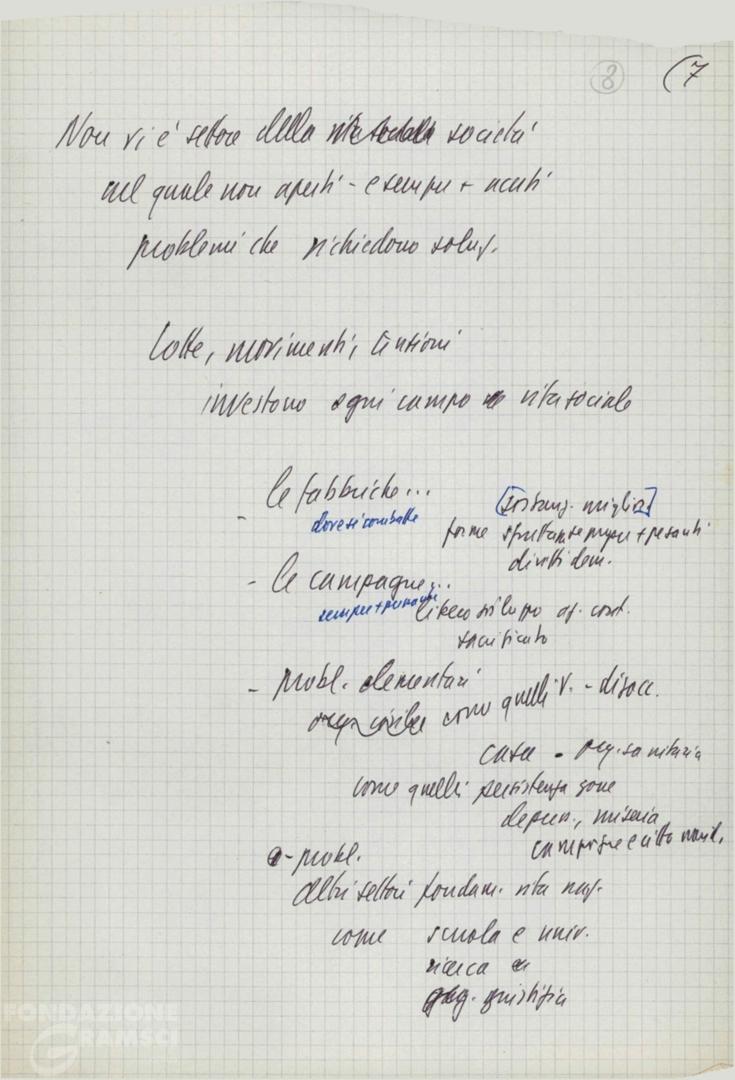 8 (7
Non vi è settore della vita sociale società
nel quale non aperti - e sempre + acuti
problemi che richiedono soluz.
Lotte, movimenti, tensioni
investono ogni campo vita sociale
- le fabbriche... [sostanz. miglior.]
dove si combatte forme sfruttam sempre + pesanti
diritti dem.
- le campagne...
sempre + libero sviluppo az. cont.
sacrificato
- probl. elementari
org. civile come quelli v. - disocc.
casa - org. sanitaria
come quelli persistenza zone
depres., miseria
campagne e città merid.
- probl.
altri settori fondam. vita naz.
come scuola e univ.
ricerca
giustizia
FONDAZIONE
GRAMSCI